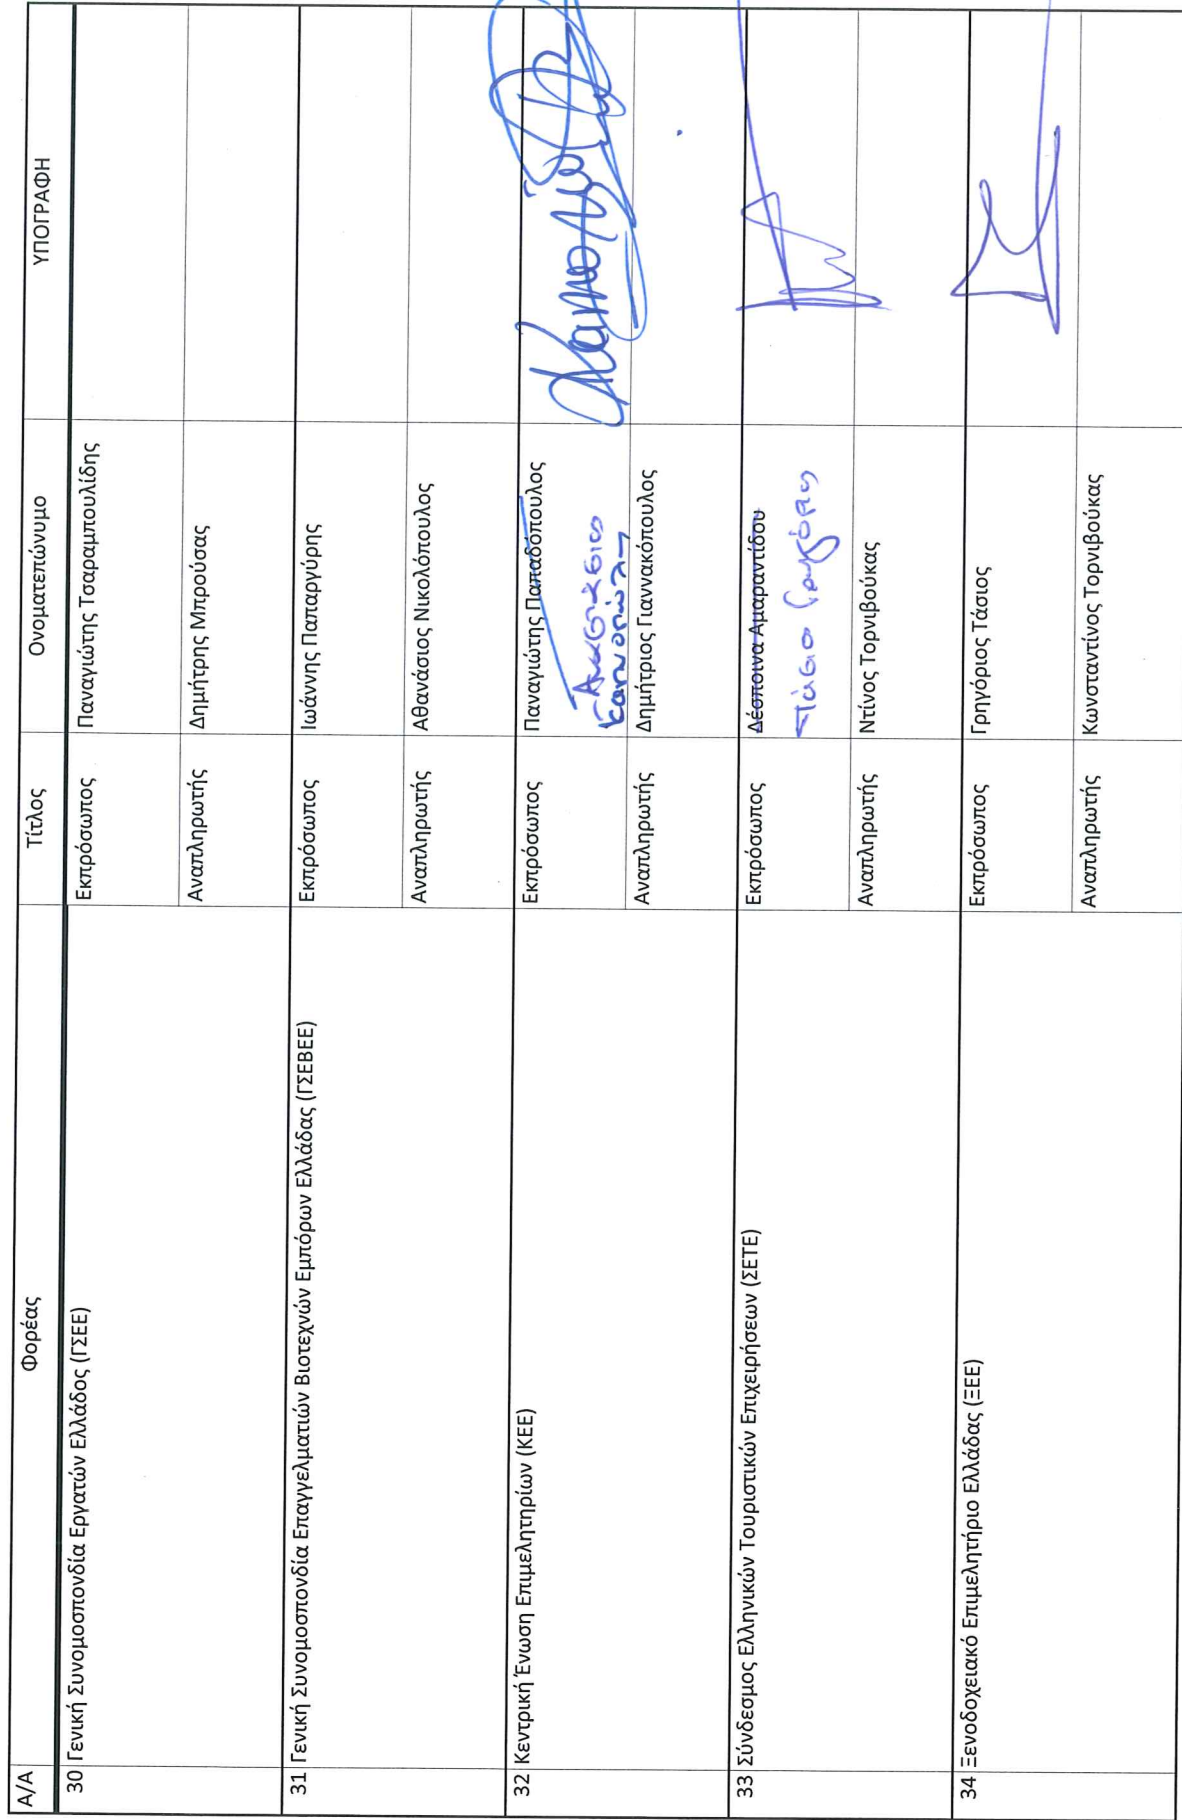 Α/Α Φορέας Τίτλος Ονοματεπώνυμο ΥΠΟΓΡΑΦΗ
30 Γενική Συνομοσπονδία Εργατών Ελλάδος (ΓΣΕΕ) Εκπρόσωπος Παναγιώτης Τσαραμπουλίδης
Αναπληρωτής Δημήτρης Μπρούσας
31 Γενική Συνομοσπονδία Επαγγελματιών Βιοτεχνών Εμπόρων Ελλάδας (ΓΣΕΒΕΕ) Εκπρόσωπος Ιωάννης Παπαργύρης
Αναπληρωτής Αθανάσιος Νικολόπουλος
32 Κεντρική Ένωση Επιμελητηρίων (ΚΕΕ) Εκπρόσωπος Παναγιώτης Παπαδόπουλος
Αναπληρωτής Δημήτριος Γιαννακόπουλος
33 Σύνδεσμος Ελληνικών Τουριστικών Επιχειρήσεων (ΣΕΤΕ) Εκπρόσωπος Δέσποινα Αμαραντίδου
Τάσιος Γρηγόρης
Αναπληρωτής Ντίνος Τορνιβούκας
34 Ξενοδοχειακό Επιμελητήριο Ελλάδας (ΞΕΕ) Εκπρόσωπος Γρηγόριος Τάσιος
Αναπληρωτής Κωνσταντίνος Τορνιβούκας